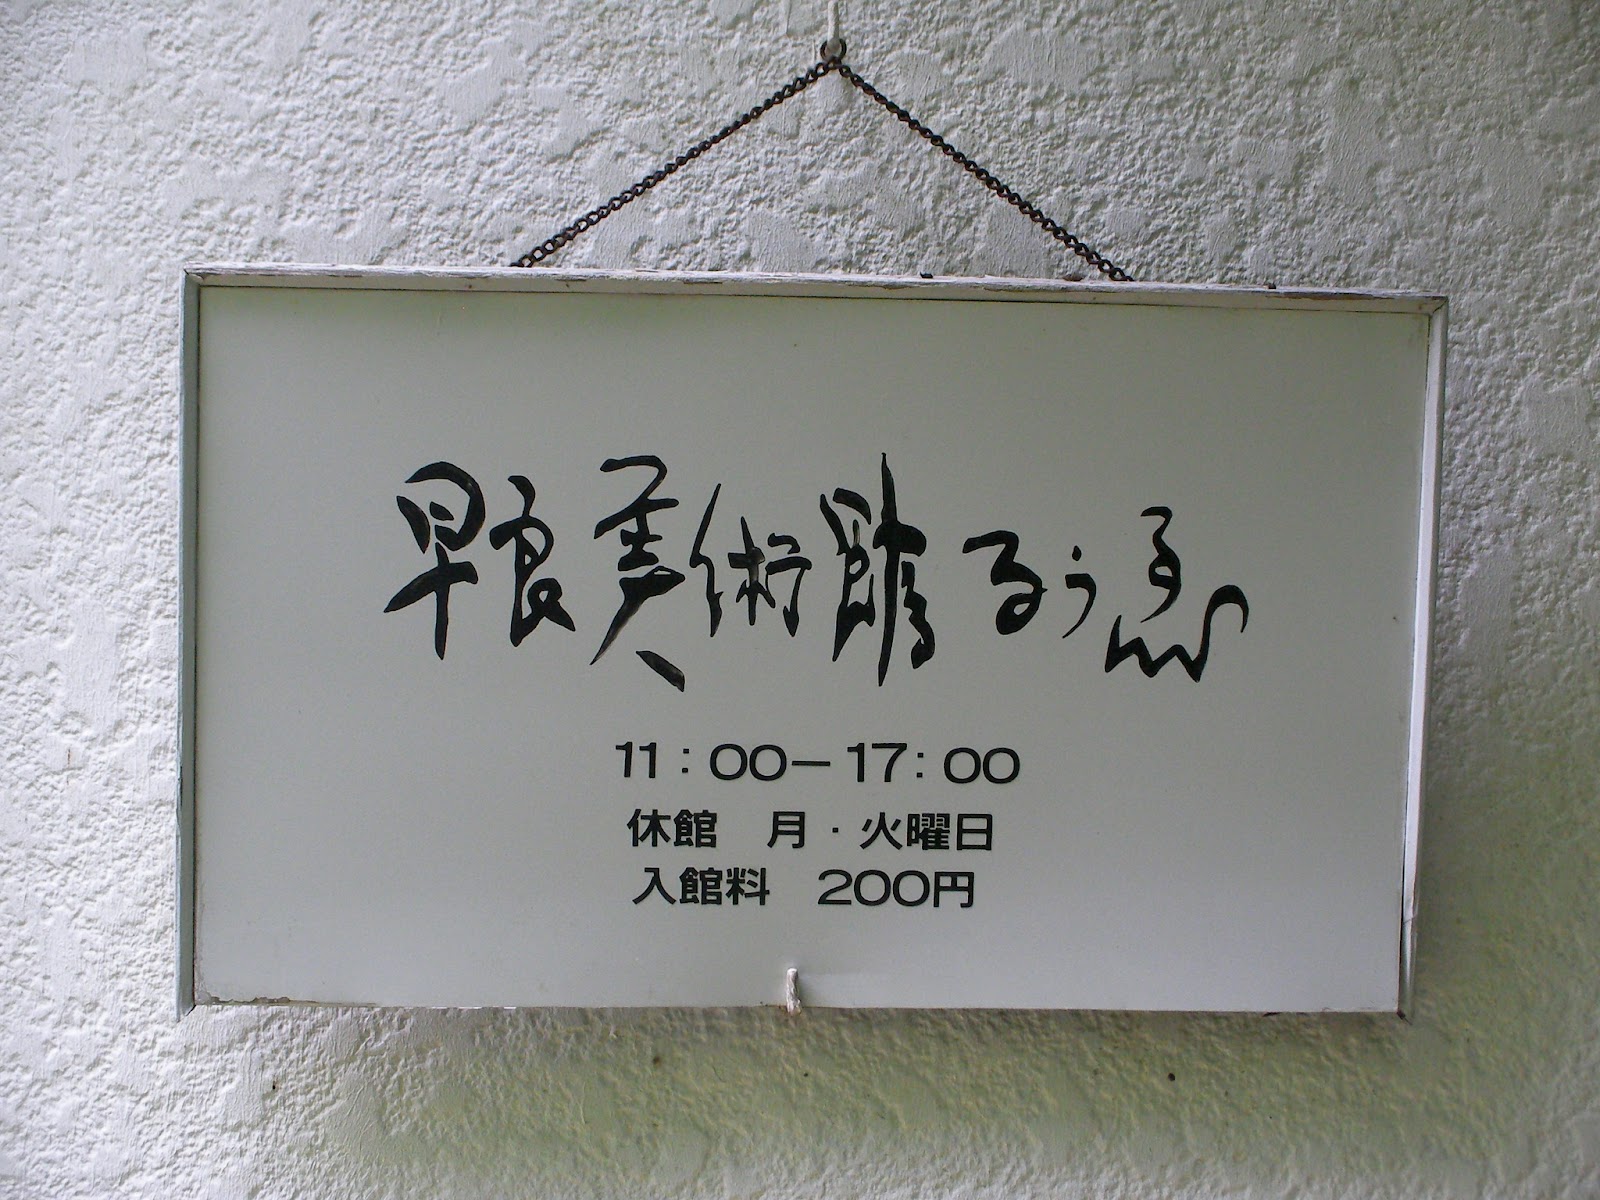 早良美術館るうゑ
11:00－17:00
休館　月・火曜日
入館料　200円